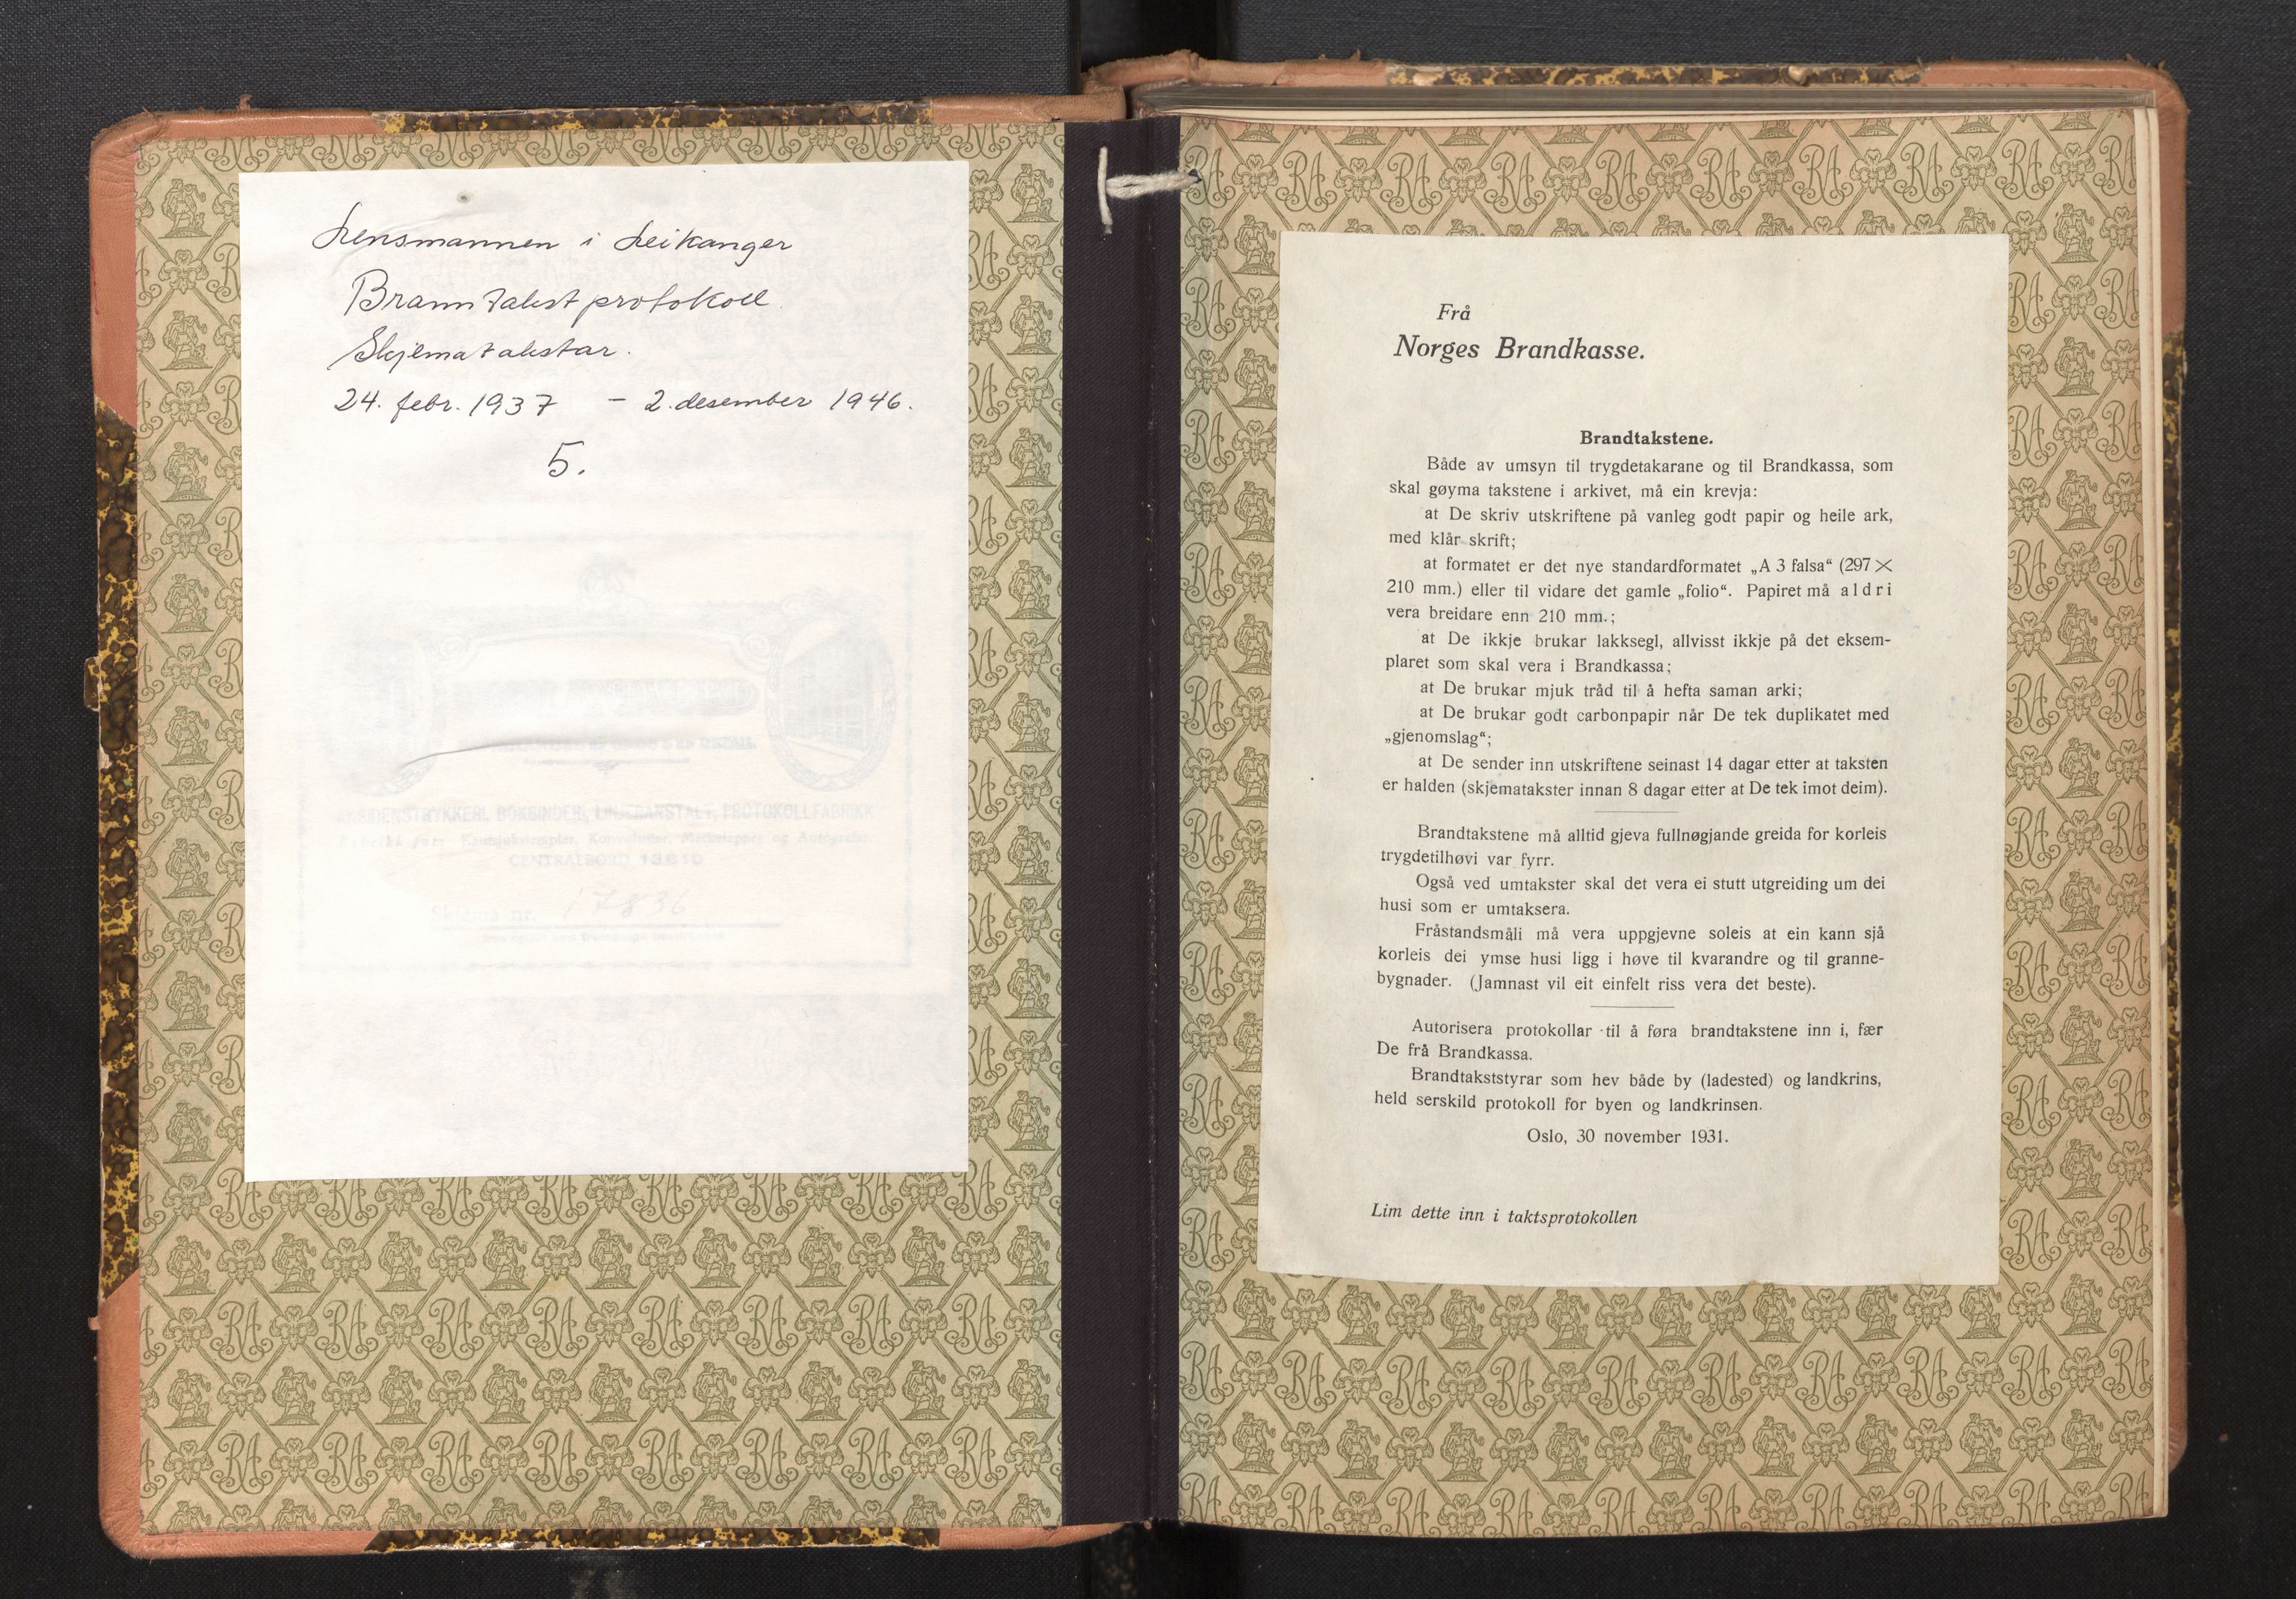 Lensmannen i Leikanger
Branntakstprotokoll.
Skjematakstar.
24. febr. 1937 – 2. desember 1946.
5.
AKSIDENSTRYKKERI, BOKBINDERI, LINJERANSTALT, PROTOKOLLFABRIKK
CENTRALBORD 13610
Skjema nr. 17836
Frå
Norges Brandkasse.
Brandtakstene.
Både av umsyn til trygdetakarane og til Brandkassa, som
skal gøyma takstene i arkivet, må ein krevja:
at De skriv utskriftene på vanleg godt papir og heile ark,
med klår skrift;
at formatet er det nye standardformatet „A 3 falsa“ (297 ×
210 mm.) eller til vidare det gamle „folio“. Papiret må aldri
vera breidare enn 210 mm.;
at De ikkje brukar lakksegl, allvisst ikkje på det eksem-
plaret som skal vera i Brandkassa;
at De brukar mjuk tråd til å hefta saman arki;
at De brukar godt carbonpapir når De tek duplikatet med
„gjenomslag“;
at De sender inn utskriftene seinast 14 dagar etter at taksten
er halden (skjematakster innan 8 dagar etter at De tek imot deim).
Brandtakstene må alltid gjeva fullnøgjande greida for korleis
trygdetilhøvi var fyrr.
Også ved umtakster skal det vera ei stutt utgreiding um dei
husi som er umtaksera.
Fråstandsmåli må vera uppgjevne soleis at ein kann sjå
korleis dei ymse husi ligg i høve til kvarandre og til granne-
bygnader. (Jamnast vil eit einfelt riss vera det beste).
Autorisera protokollar til å føra brandtakstene inn i, fær
De frå Brandkassa.
Brandtakststyrar som hev både by (ladested) og landkrins,
held serskild protokoll for byen og landkrinsen.
Oslo, 30 november 1931.
Lim dette inn i taktsprotokollen